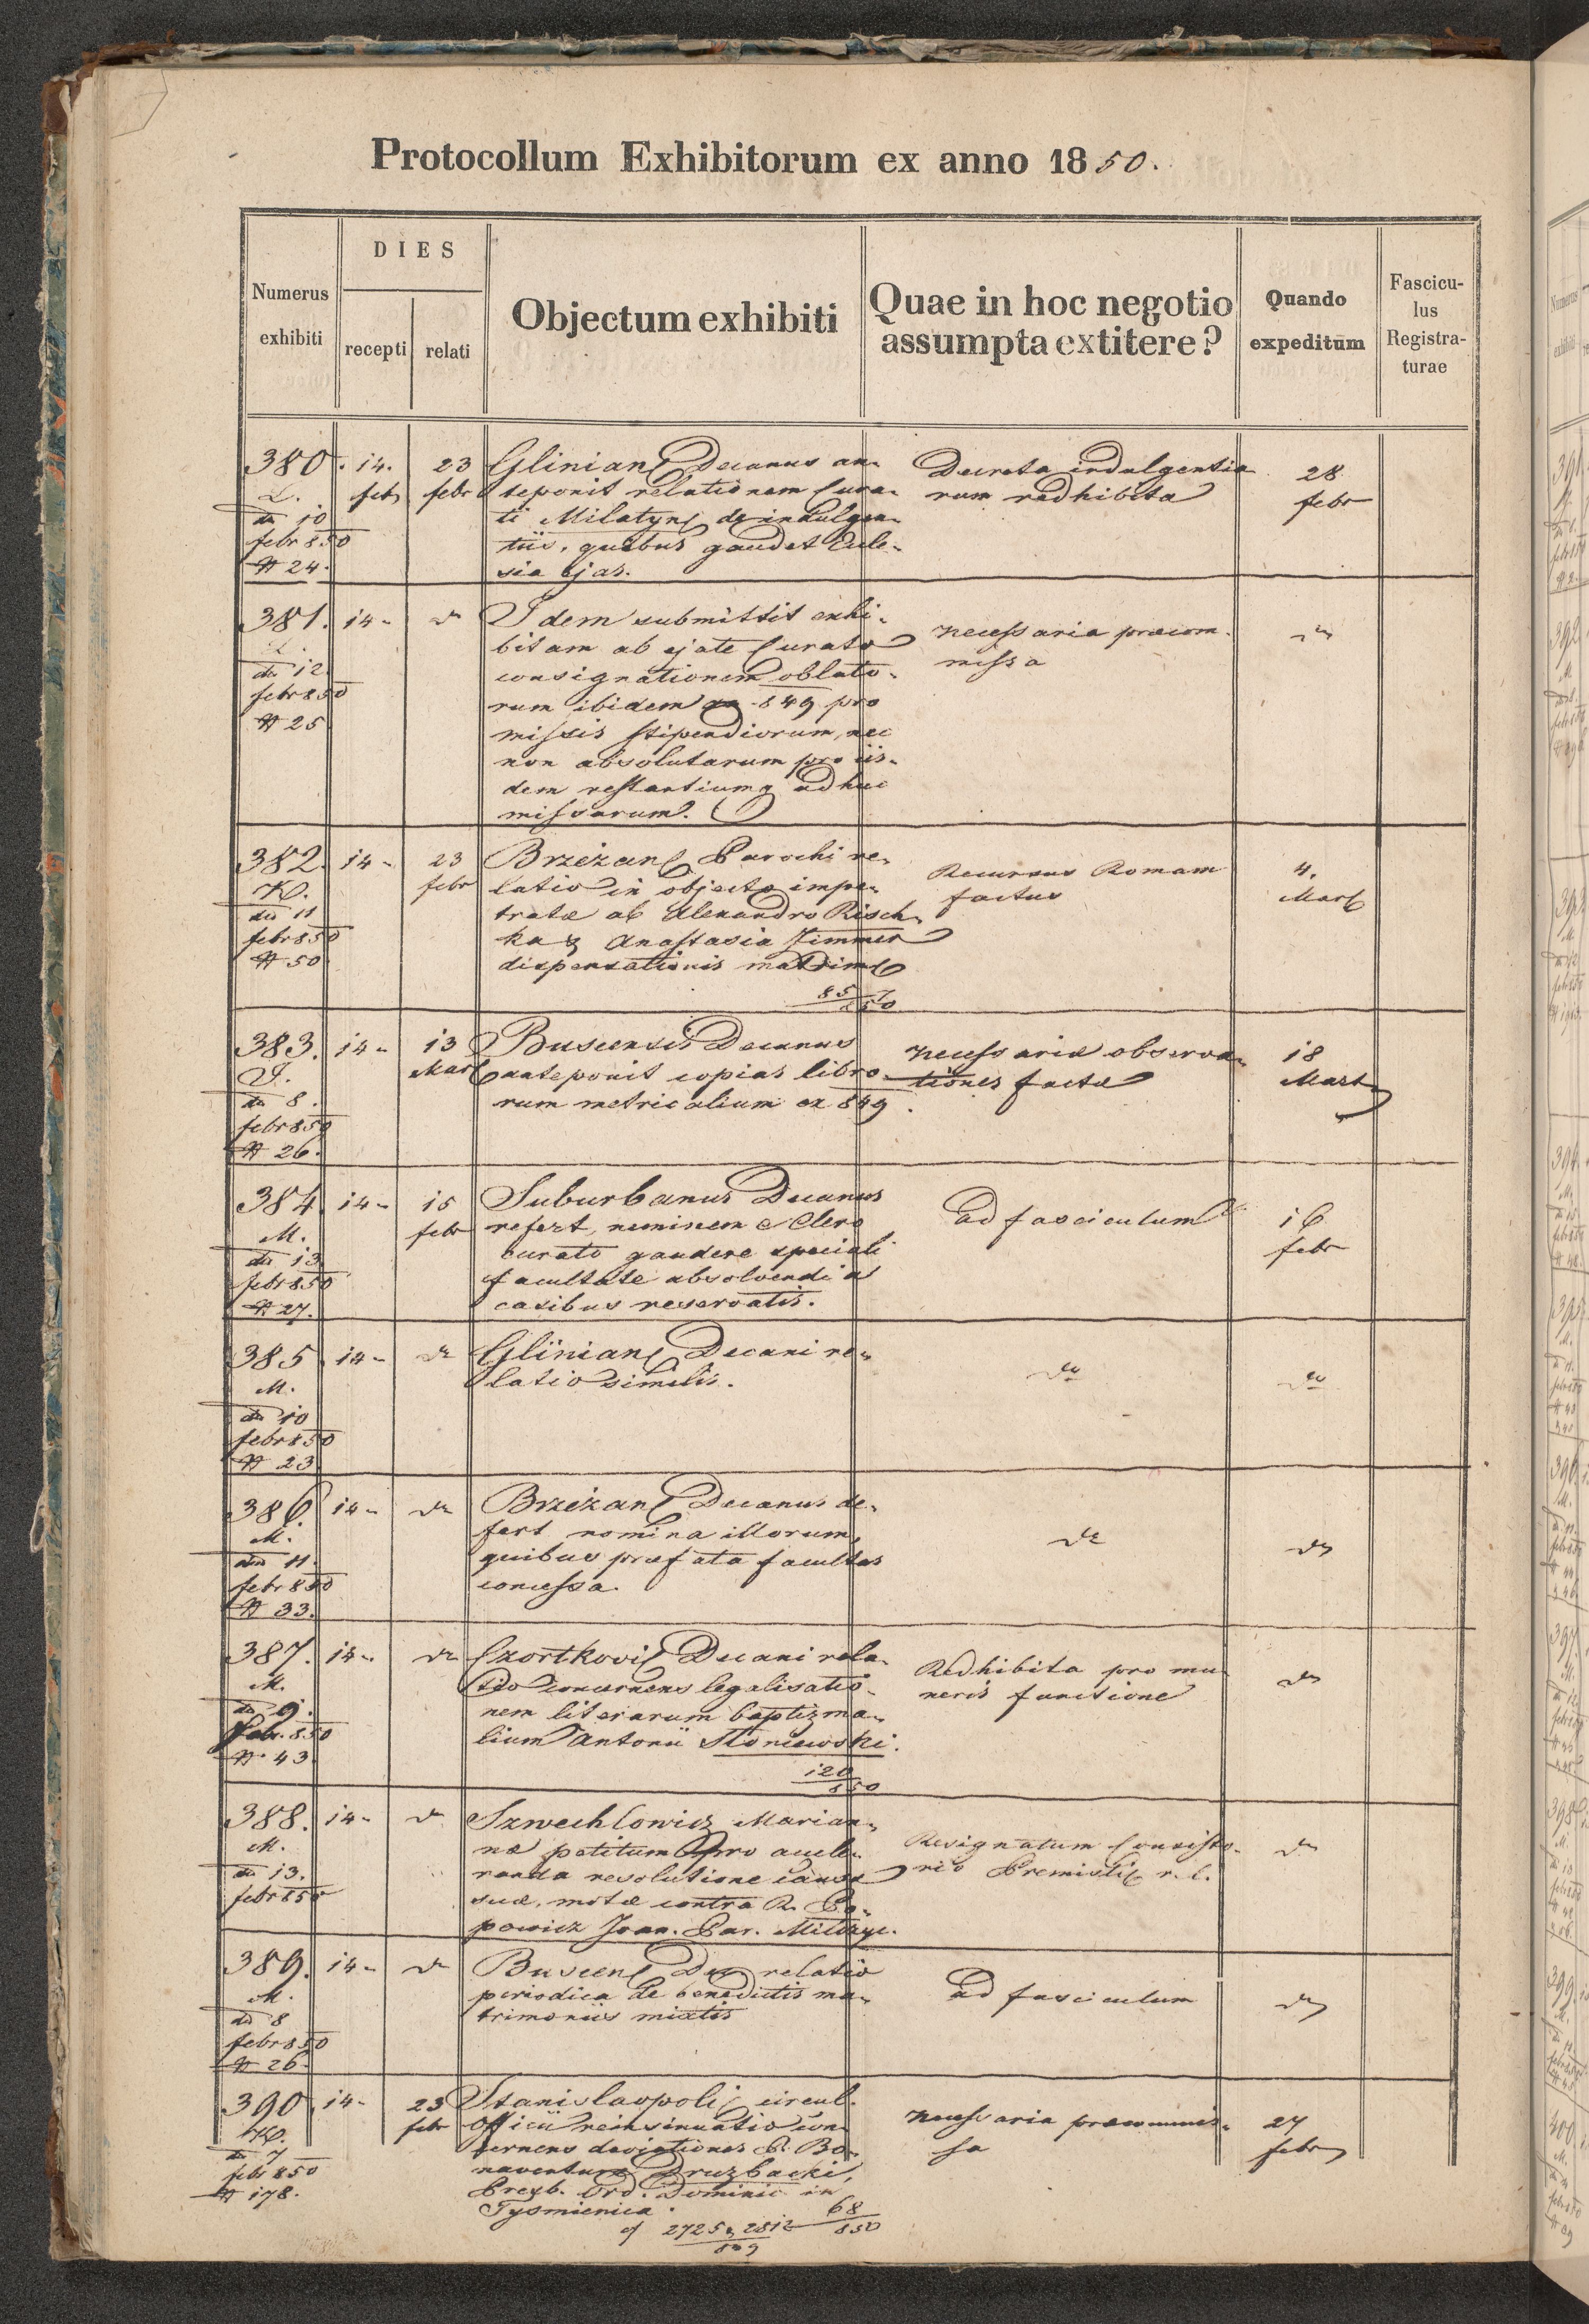 Protocollum Exhibitorum ex anno 1850.
Numerus
exhibiti
DIES
recepti
relati
Objectum exhibiti
Quae in hoc negotio
assumpta extitere?
Quando
expeditum
Fascicu-
lus
Registra-
turae
380.
L.
do 10
febr 850
N 24.
14.
feb
23
febr
Glinian Decanus an-
teponit relationem Cura-
ti Milatyn de indulgen-
tiis, quibus gaudet Eccle-
sia ejas.
Decreta indulgentia
rum redhibita
28
febr
381.
do 12
febr 850
N 25
14-
do
Idem submittit exhi-
bitam ab ejate Curato
consignationem oblato-
rum ibidem 849 pro
missis stipendiorum, nec
non absolutarum pro iis-
dem restantiumq adhuc
missarum.
necessaria praecom-
missa
do
382.
K.
do 11
febr 850
N 50
14-
23
febr
Brzeżan Parochi re-
latio in objecto impe-
tratae ab Alexandro Risch-
ka & Anastasia Zimmer
dispensationis matrim
85
850
Recursus Romam
factus
4.
Mart
383.
I.
do 8.
febr 850
N 26.
14-
13
Mart
Buscensis Decanus
anteponit copias libro-
rum metricalium ex 849.
necessariae observa-
tiones factae
18
Mart
384
M.
do 13
febr 850
N 27.
14-
15
febr
Suburbanus Decanus
refert, neminem e Clero
curato gaudere speciali
facultate absolvendi a
casibus reservatis.
ad fasciculum
16
febr
385.
M.
do 10
febr 850
N 23
14-
do
Glinian Decani re-
latio similis.
do
do
386
M.
do 11.
febr 850
N 33.
14-
do
Brzeżan Decanus de-
fert nomina illorum,
quibus praefata facultas
concessa.
do
do
387.
M.
do 9.
febr. 850
N. 43
14-
do
Czortkovi Decani rela-
tio concernens legalisatio-
nem literarum baptizma-
lium Antonii Słoniewski.
120
850
Redhibita pro mu-
neris functione
do
388.
M.
do 13.
febr 850
14-
do
Szwechlowicz Marian-
nae petitum pro accele-
randa resolutione causae
suae, motae contra R. Po-
powicz Joan. Par.
Resignatum Consisto-
rio Premisli r. l.
do
389.
M.
do 8
febr 850
N 26.
14-
do
Buscen Dec relatio
periodica de benedictis ma-
trimoniis mixtis
ad fasciculum
do
390
K.
do 7
febr 850
N 178.
14-
23
febr
Stanislaopoli circul.
Officii reinsinuatio con-
cernens deviationes P. Bo-
naventurae Druzbacki,
Presb. Ord. Dominic in
Tysmienica.
cf 2725 & 2812
849
68
850
necessaria praecommis-
sa
27
febr